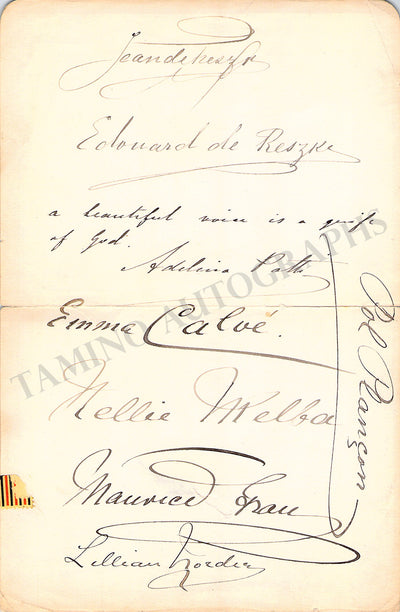 Jean de Reszke
Edouard de Reszke
a beautiful voice is a guift
of God.
Adelina Patti
Emma Calvé.
Nellie Melba
Maurice Grau
Lillian Nordica
Pol Plançon
TAMINO AUTOGRAPHS